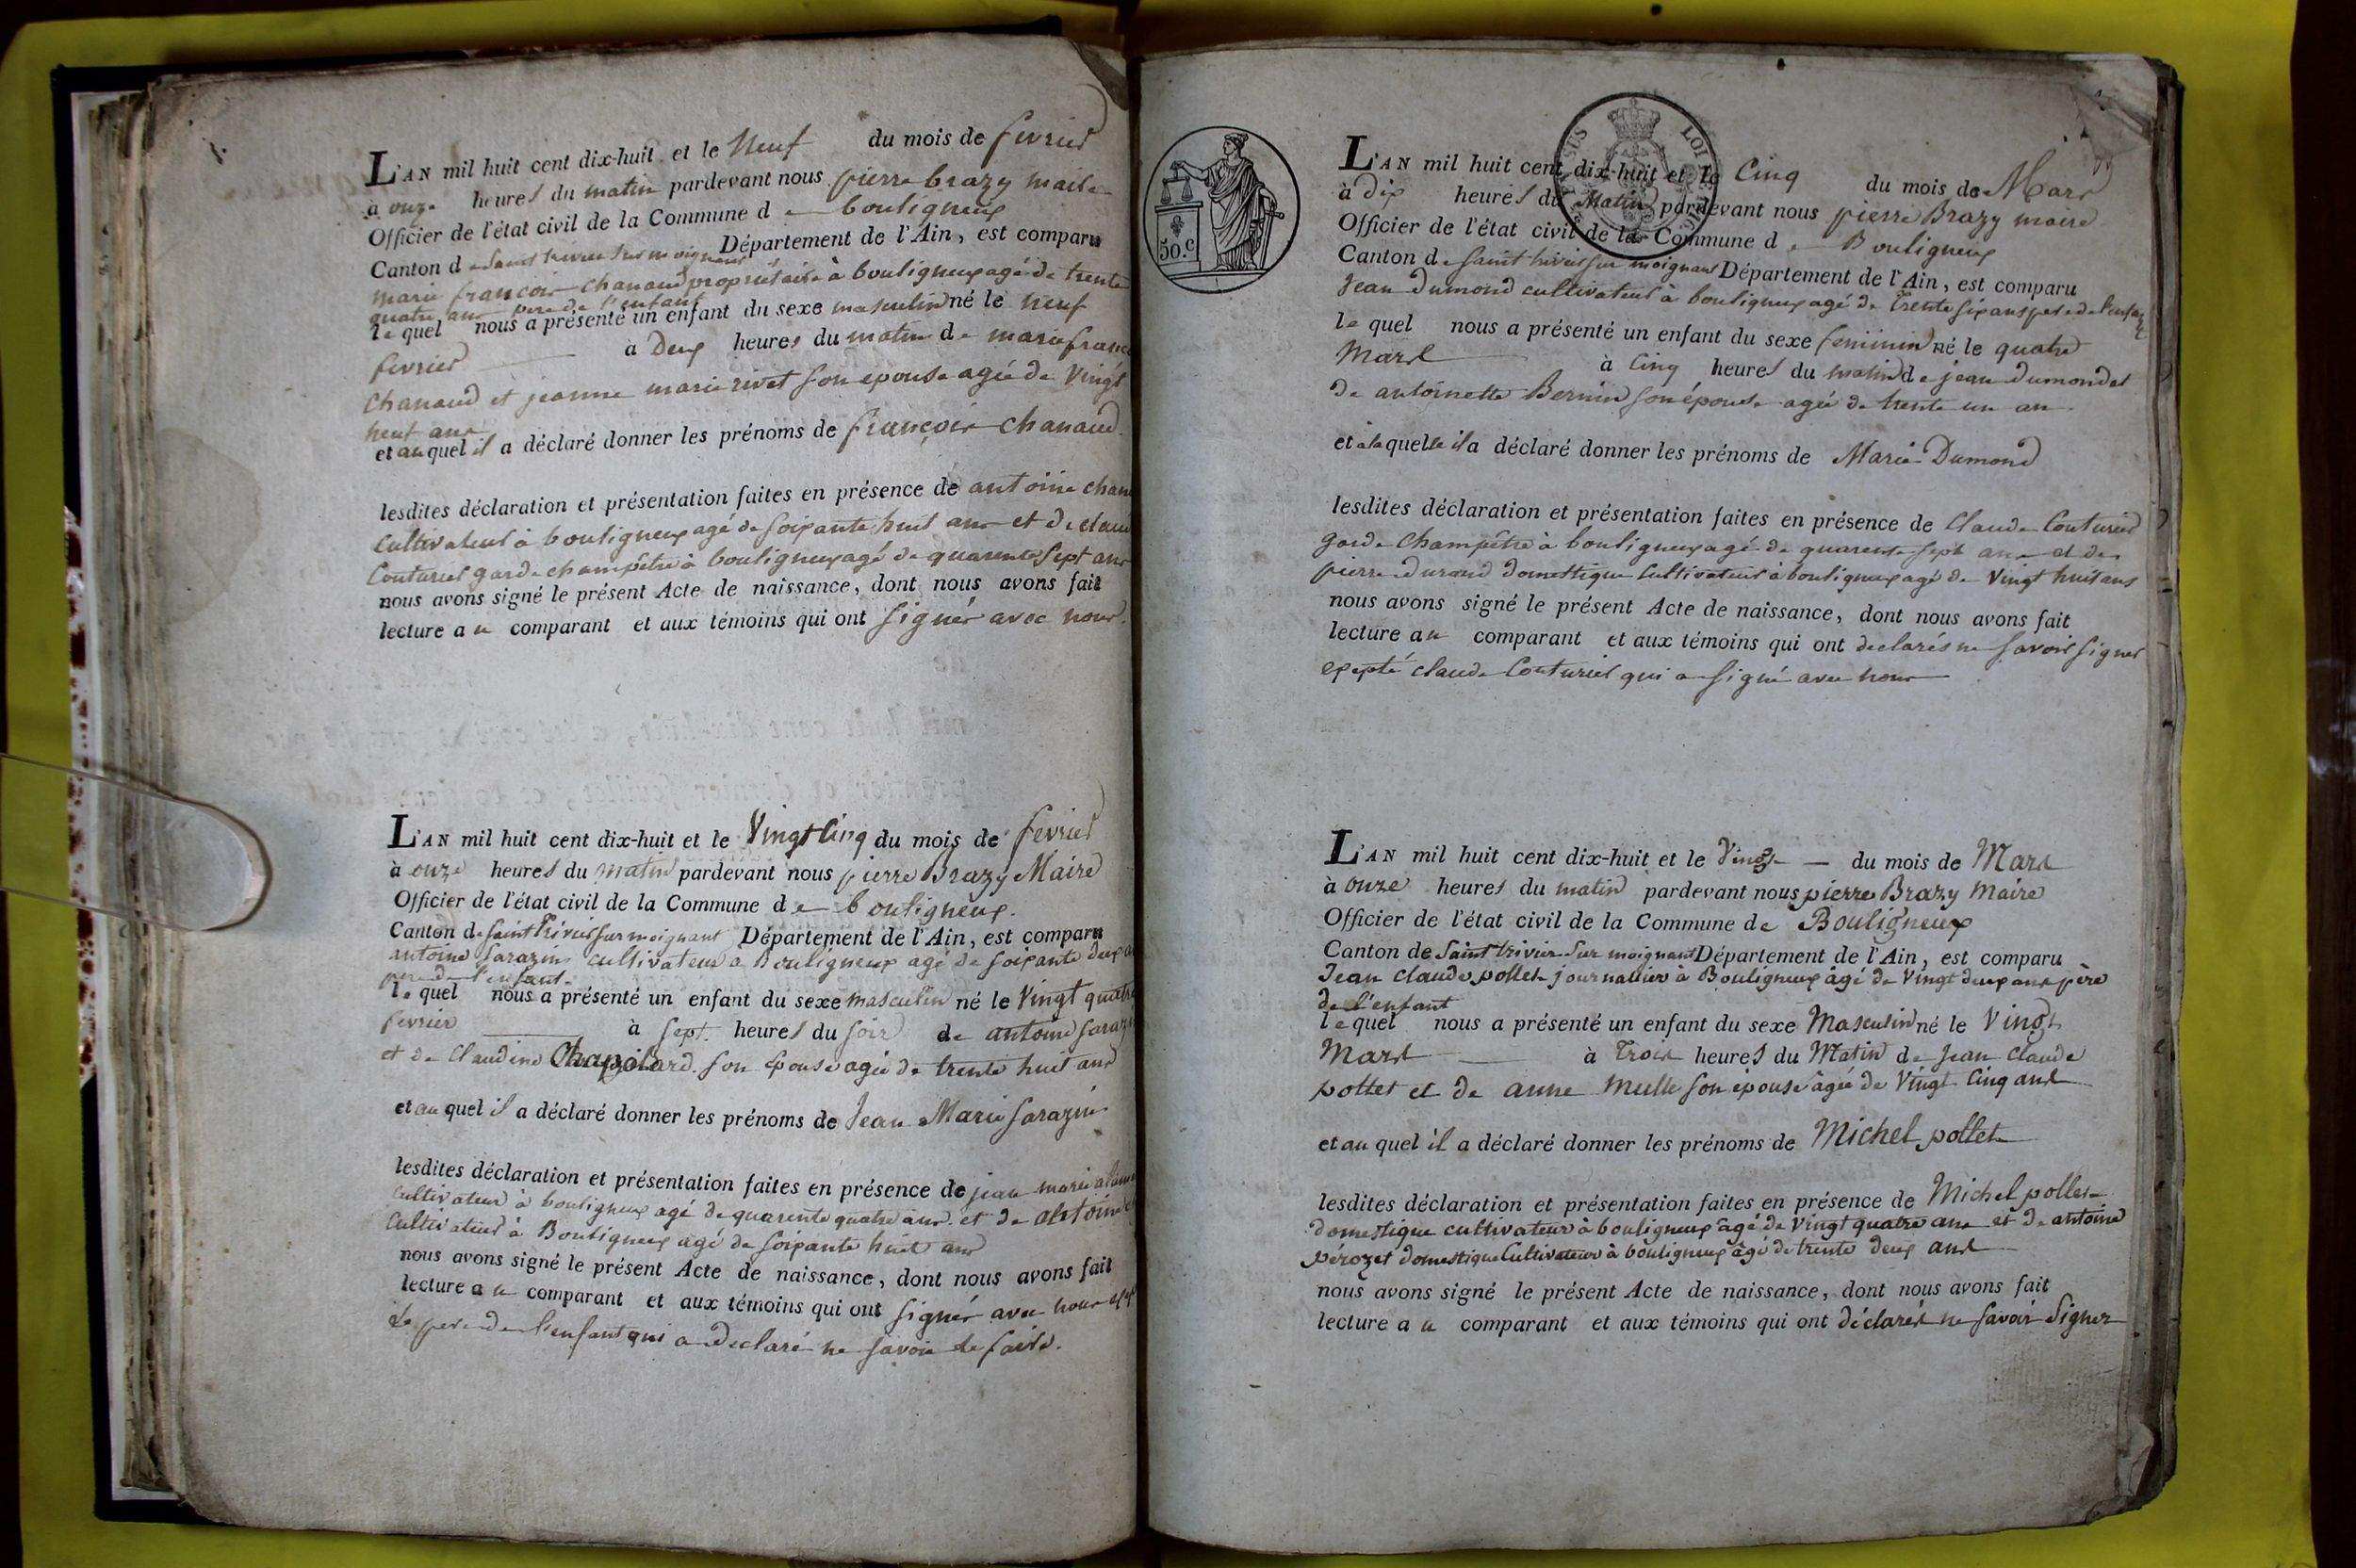 L'AN mil huit cent dix-huit et le Neuf du mois de fevrier
à onze heures du matin pardevant nous pierre brazy maire
Officier de l'état civil de la Commune de bouligneux
Canton de Saint trivier sur moignans Département de l'Ain, est comparu
marie françois chanaud propriétaire à bouligneux agé de trente
quatre ans pere de l'enfant
lequel nous a présenté un enfant du sexe masculin né le neuf
fevrier à Deux heures du matin de marie franc
chanaud et jeanne marie rivet son epouse agée de Vingt
neuf ans
et auquel il a déclaré donner les prénoms de françois chanaud
lesdites déclaration et présentation faites en présence de antoine chan
cultivateur à bouligneux agé de soixante huit ans et de claud
Couturier garde champêtre à bouligneux agé de quarente Sept ans
nous avons signé le présent Acte de naissance, dont nous avons fait
lecture au comparant et aux témoins qui ont signés avec nous.
L'AN mil huit cent dix-huit et le Vingt Cinq du mois de fevrier
à onze heures du matin pardevant nous pierre Brazy Maire
Officier de l'état civil de la Commune de bouligneux.
Canton de Saint Trivier sur moignant Département de l'Ain, est comparu
antoine Sarazin cultivateur a Bouligneux agé de soixante deux
pere de l'enfant
lequel nous a présenté un enfant du sexe masculin né le Vingt quatre
fevrier à sept heures du soir de antoine Saraz
et de Claudine Chapolard son epouse agée de trente huit ans
et auquel il a déclaré donner les prénoms de Jean Marie Sarazin
lesdites déclaration et présentation faites en présence de jean marie
cultivateur à bouligneux agé de quarente quatre ans et de antoine
Cultivateur à Bouligneux agé de soixante huit ans
nous avons signé le présent Acte de naissance, dont nous avons fait
lecture au comparant et aux témoins qui ont signés avec nous
le pere de l'enfant qui a declaré ne savoir le faire.
50.c
LOI
L'AN mil huit cent dix-huit et le Cinq du mois de Mars
à dix heures du Matin pardevant nous pierre Brazy maire
Officier de l'état civil de la Commune de Bouligneux
Canton de Saint trivier sur moignans Département de l'Ain, est comparu
Jean Dumond cultivateur à bouligneux agé de trente six ans pere de l'enfant
lequel nous a présenté un enfant du sexe feminin né le quatre
Mars à Cinq heures du matin de jean Dumond et
de antoinette Bernin son épouse agée de trente un an
et à laquelle il a déclaré donner les prénoms de Marie Dumond
lesdites déclaration et présentation faites en présence de Claude Couturier
garde Champêtre à bouligneux agé de quarente sept ans et de
pierre durand domestique cultivateur à bouligneux agé de Vingt huit ans
nous avons signé le présent Acte de naissance, dont nous avons fait
lecture au comparant et aux témoins qui ont declarés ne savoir signer
excepté claude Couturier qui a signé avec nous
L'AN mil huit cent dix-huit et le Vingt du mois de Mars
à onze heures du matin pardevant nous pierre Brazy Maire
Officier de l'état civil de la Commune de Bouligneux
Canton de Saint trivier sur moignans Département de l'Ain, est comparu
Jean Claude pollet journallier à Bouligneux âgé de Vingt deux ans père
de l'enfant
lequel nous a présenté un enfant du sexe Masculin né le Vingt
Mars à Trois heures du Matin de Jean Claude
pollet et de anne Mulle son épouse âgée de Vingt Cinq ans
et auquel il a déclaré donner les prénoms de Michel pollet
lesdites déclaration et présentation faites en présence de Michel pollet
domestique cultivateur à bouligneux âgé de Vingt quatre ans et de antoine
pérozet domestique Cultivateur à bouligneux âgé de trente deux ans
nous avons signé le présent Acte de naissance, dont nous avons fait
lecture au comparant et aux témoins qui ont déclarés ne savoir Signer